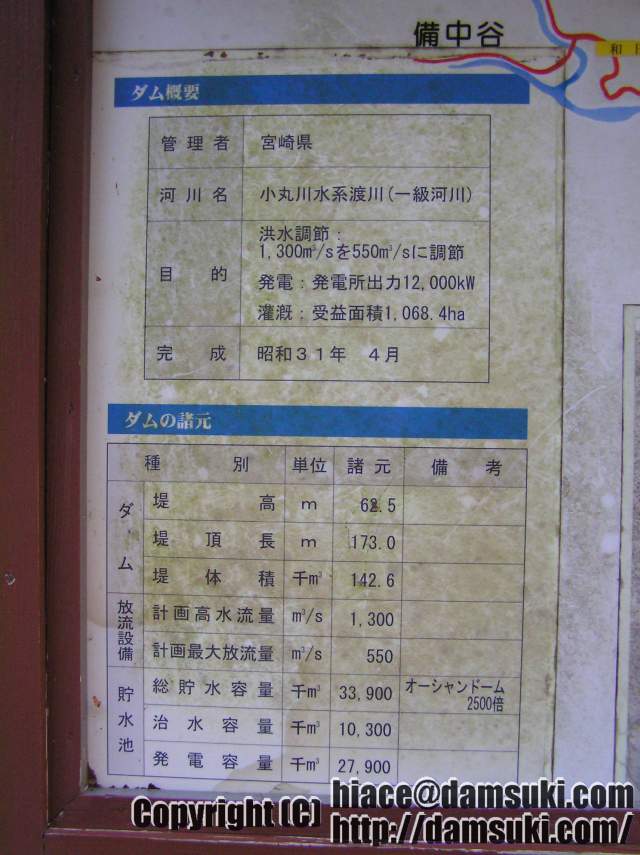 備中谷
和田
ダム概要
管理者 宮崎県
河川名 小丸川水系渡川(一級河川)
目的 洪水調節:
1,300m³/sを550m³/sに調節
発電:発電所出力12,000kW
灌漑:受益面積1,068.4ha
完成 昭和31年 4月
ダムの諸元
種別 単位 諸元 備考
ダム 堤高 m 62.5
堤頂長 m 173.0
堤体積 千m³ 142.6
放流設備 計画高水流量 m³/s 1,300
計画最大放流量 m³/s 550
貯水池 総貯水容量 千m³ 33,900 オーシャンドーム
2500倍
治水容量 千m³ 10,300
発電容量 千m³ 27,900
Copyright (C) hiace@damsuki.com
http://damsuki.com/